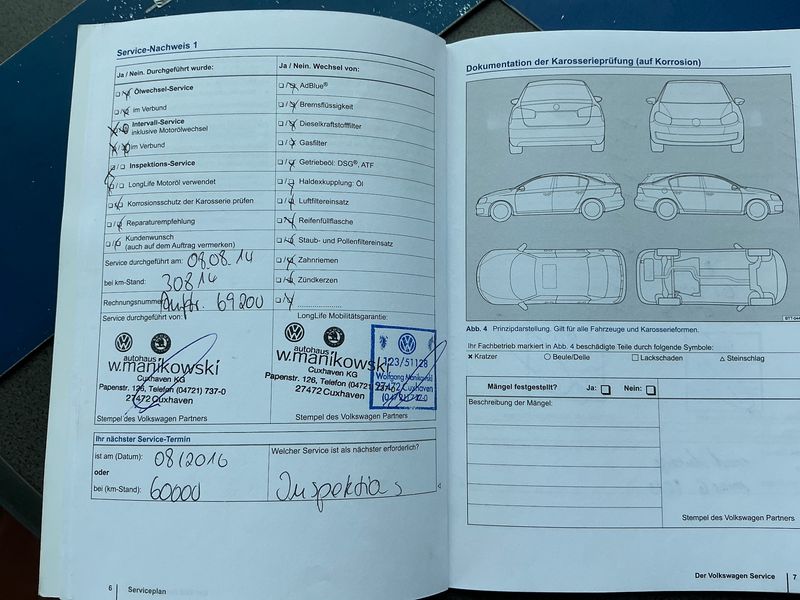 Service-Nachweis 1
Ja / Nein. Durchgeführt wurde:
Ölwechsel-Service
im Verbund
Intervall-Service
inklusive Motorölwechsel
im Verbund
Inspektions-Service
LongLife Motoröl verwendet
Korrosionsschutz der Karosserie prüfen
Reparaturempfehlung
Kundenwunsch
(auch auf dem Auftrag vermerken)
Service durchgeführt am: 08.08.14
bei km-Stand: 30814
Rechnungsnummer: Auftr. 69200
Ja / Nein. Wechsel von:
AdBlue®
Bremsflüssigkeit
Dieselkraftstofffilter
Gasfilter
Getriebeöl: DSG®, ATF
Haldexkupplung: Öl
Luftfiltereinsatz
Reifenfüllflasche
Staub- und Pollenfiltereinsatz
Zahnriemen
Zündkerzen
Service durchgeführt von:
autohaus
w.manikowski
Cuxhaven KG
Papenstr. 126, Telefon (04721) 737-0
27472 Cuxhaven
Stempel des Volkswagen Partners
LongLife Mobilitätsgarantie:
autohaus
w.manikowski
Cuxhaven KG
Papenstr. 126, Telefon (04721)
27472 Cuxhaven
123/51128
Wolfgang Manikowski
Cuxhaven
Stempel des Volkswagen Partners
Ihr nächster Service-Termin
ist am (Datum): 08/2016
oder
bei (km-Stand): 60000
Welcher Service ist als nächster erforderlich?
Inspektions
6 Serviceplan
Dokumentation der Karosserieprüfung (auf Korrosion)
Abb. 4 Prinzipdarstellung. Gilt für alle Fahrzeuge und Karosserieformen.
Ihr Fachbetrieb markiert in Abb. 4 beschädigte Teile durch folgende Symbole:
× Kratzer ○ Beule/Delle □ Lackschaden △ Steinschlag
Mängel festgestellt? Ja: Nein:
Beschreibung der Mängel:
Stempel des Volkswagen Partners
Der Volkswagen Service 7